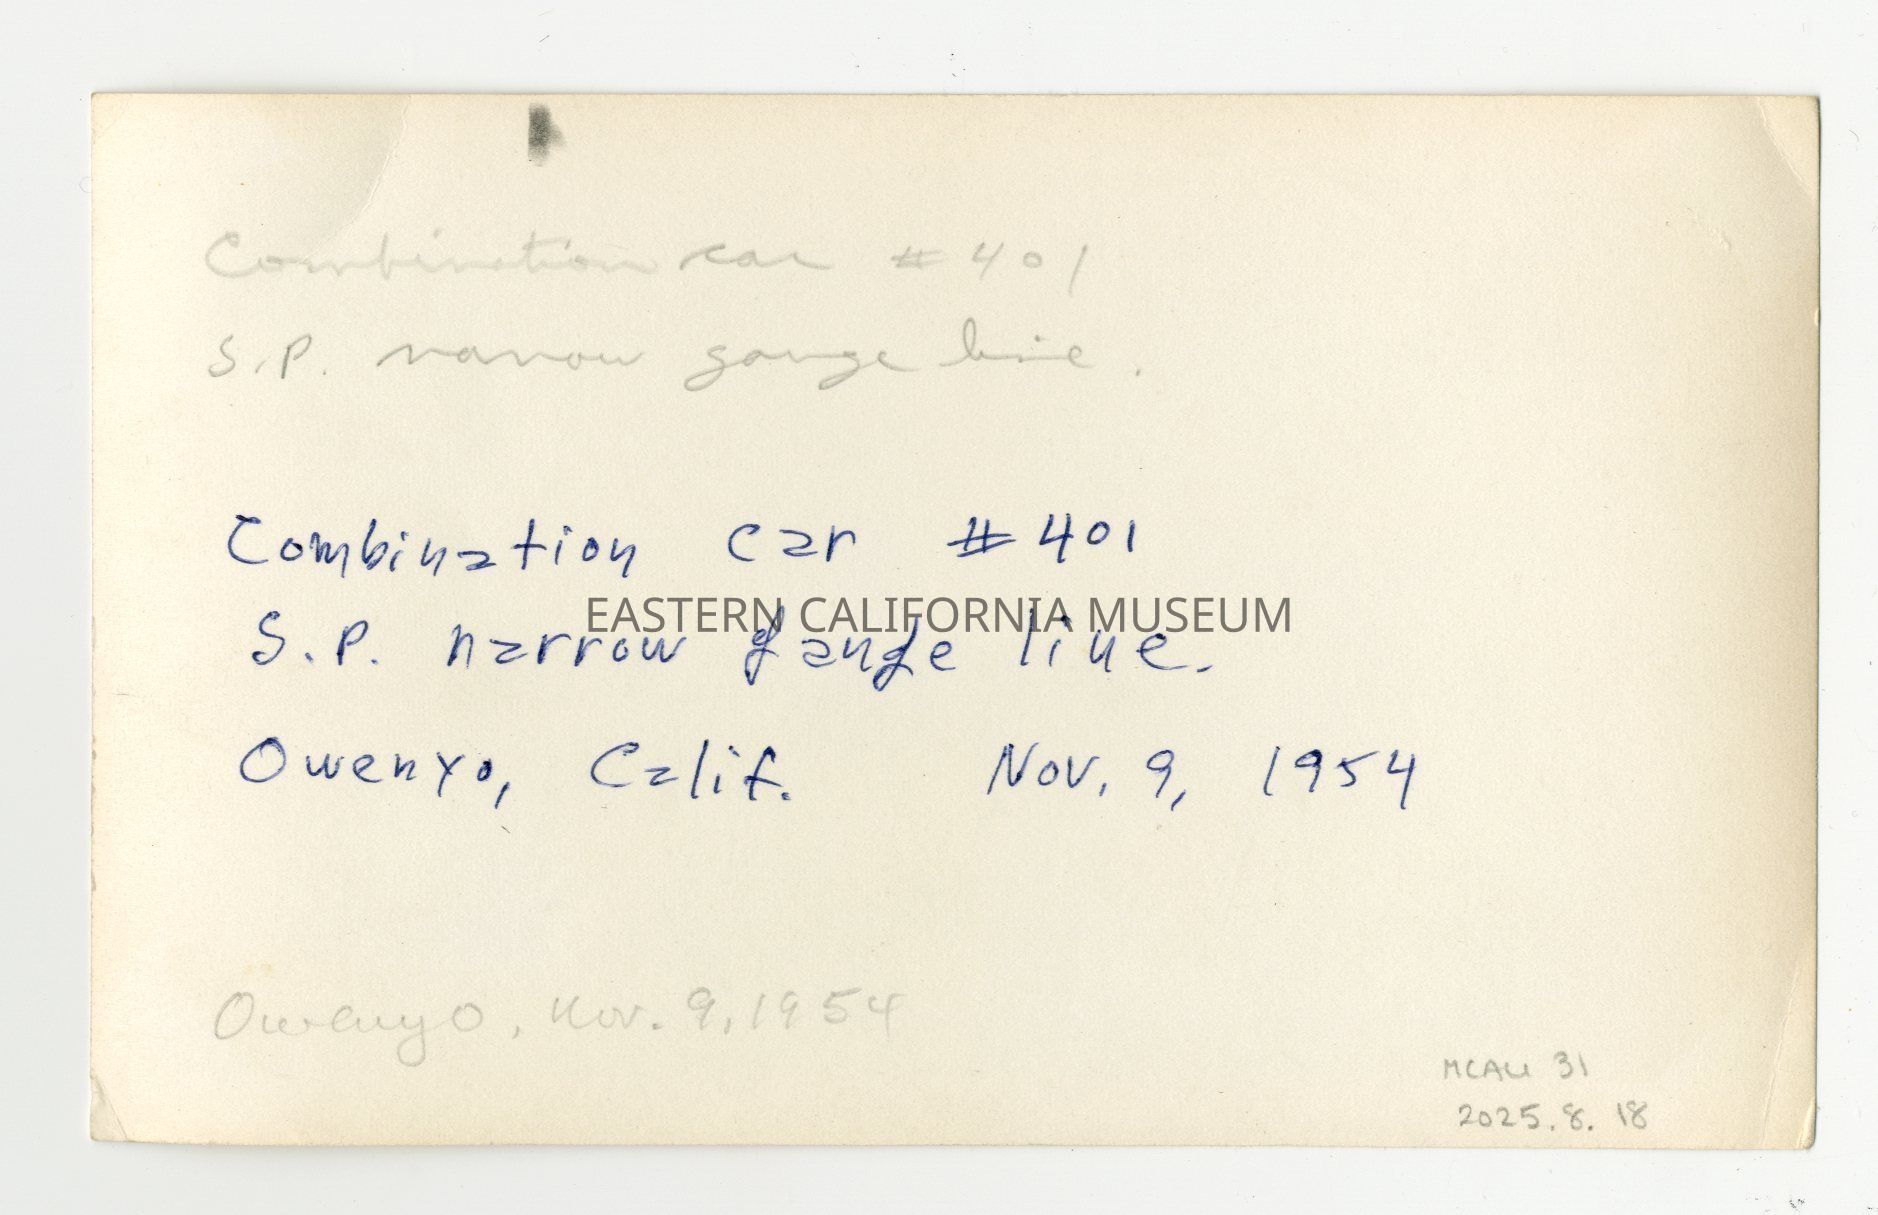 Combination car # 401
S.P. narrow gauge line.
Combination car # 401
EASTERN CALIFORNIA MUSEUM
S.P. narrow gauge line.
Owenyo, Calif. Nov. 9, 1954
Owenyo, Nov. 9, 1954
31
2025.8.18